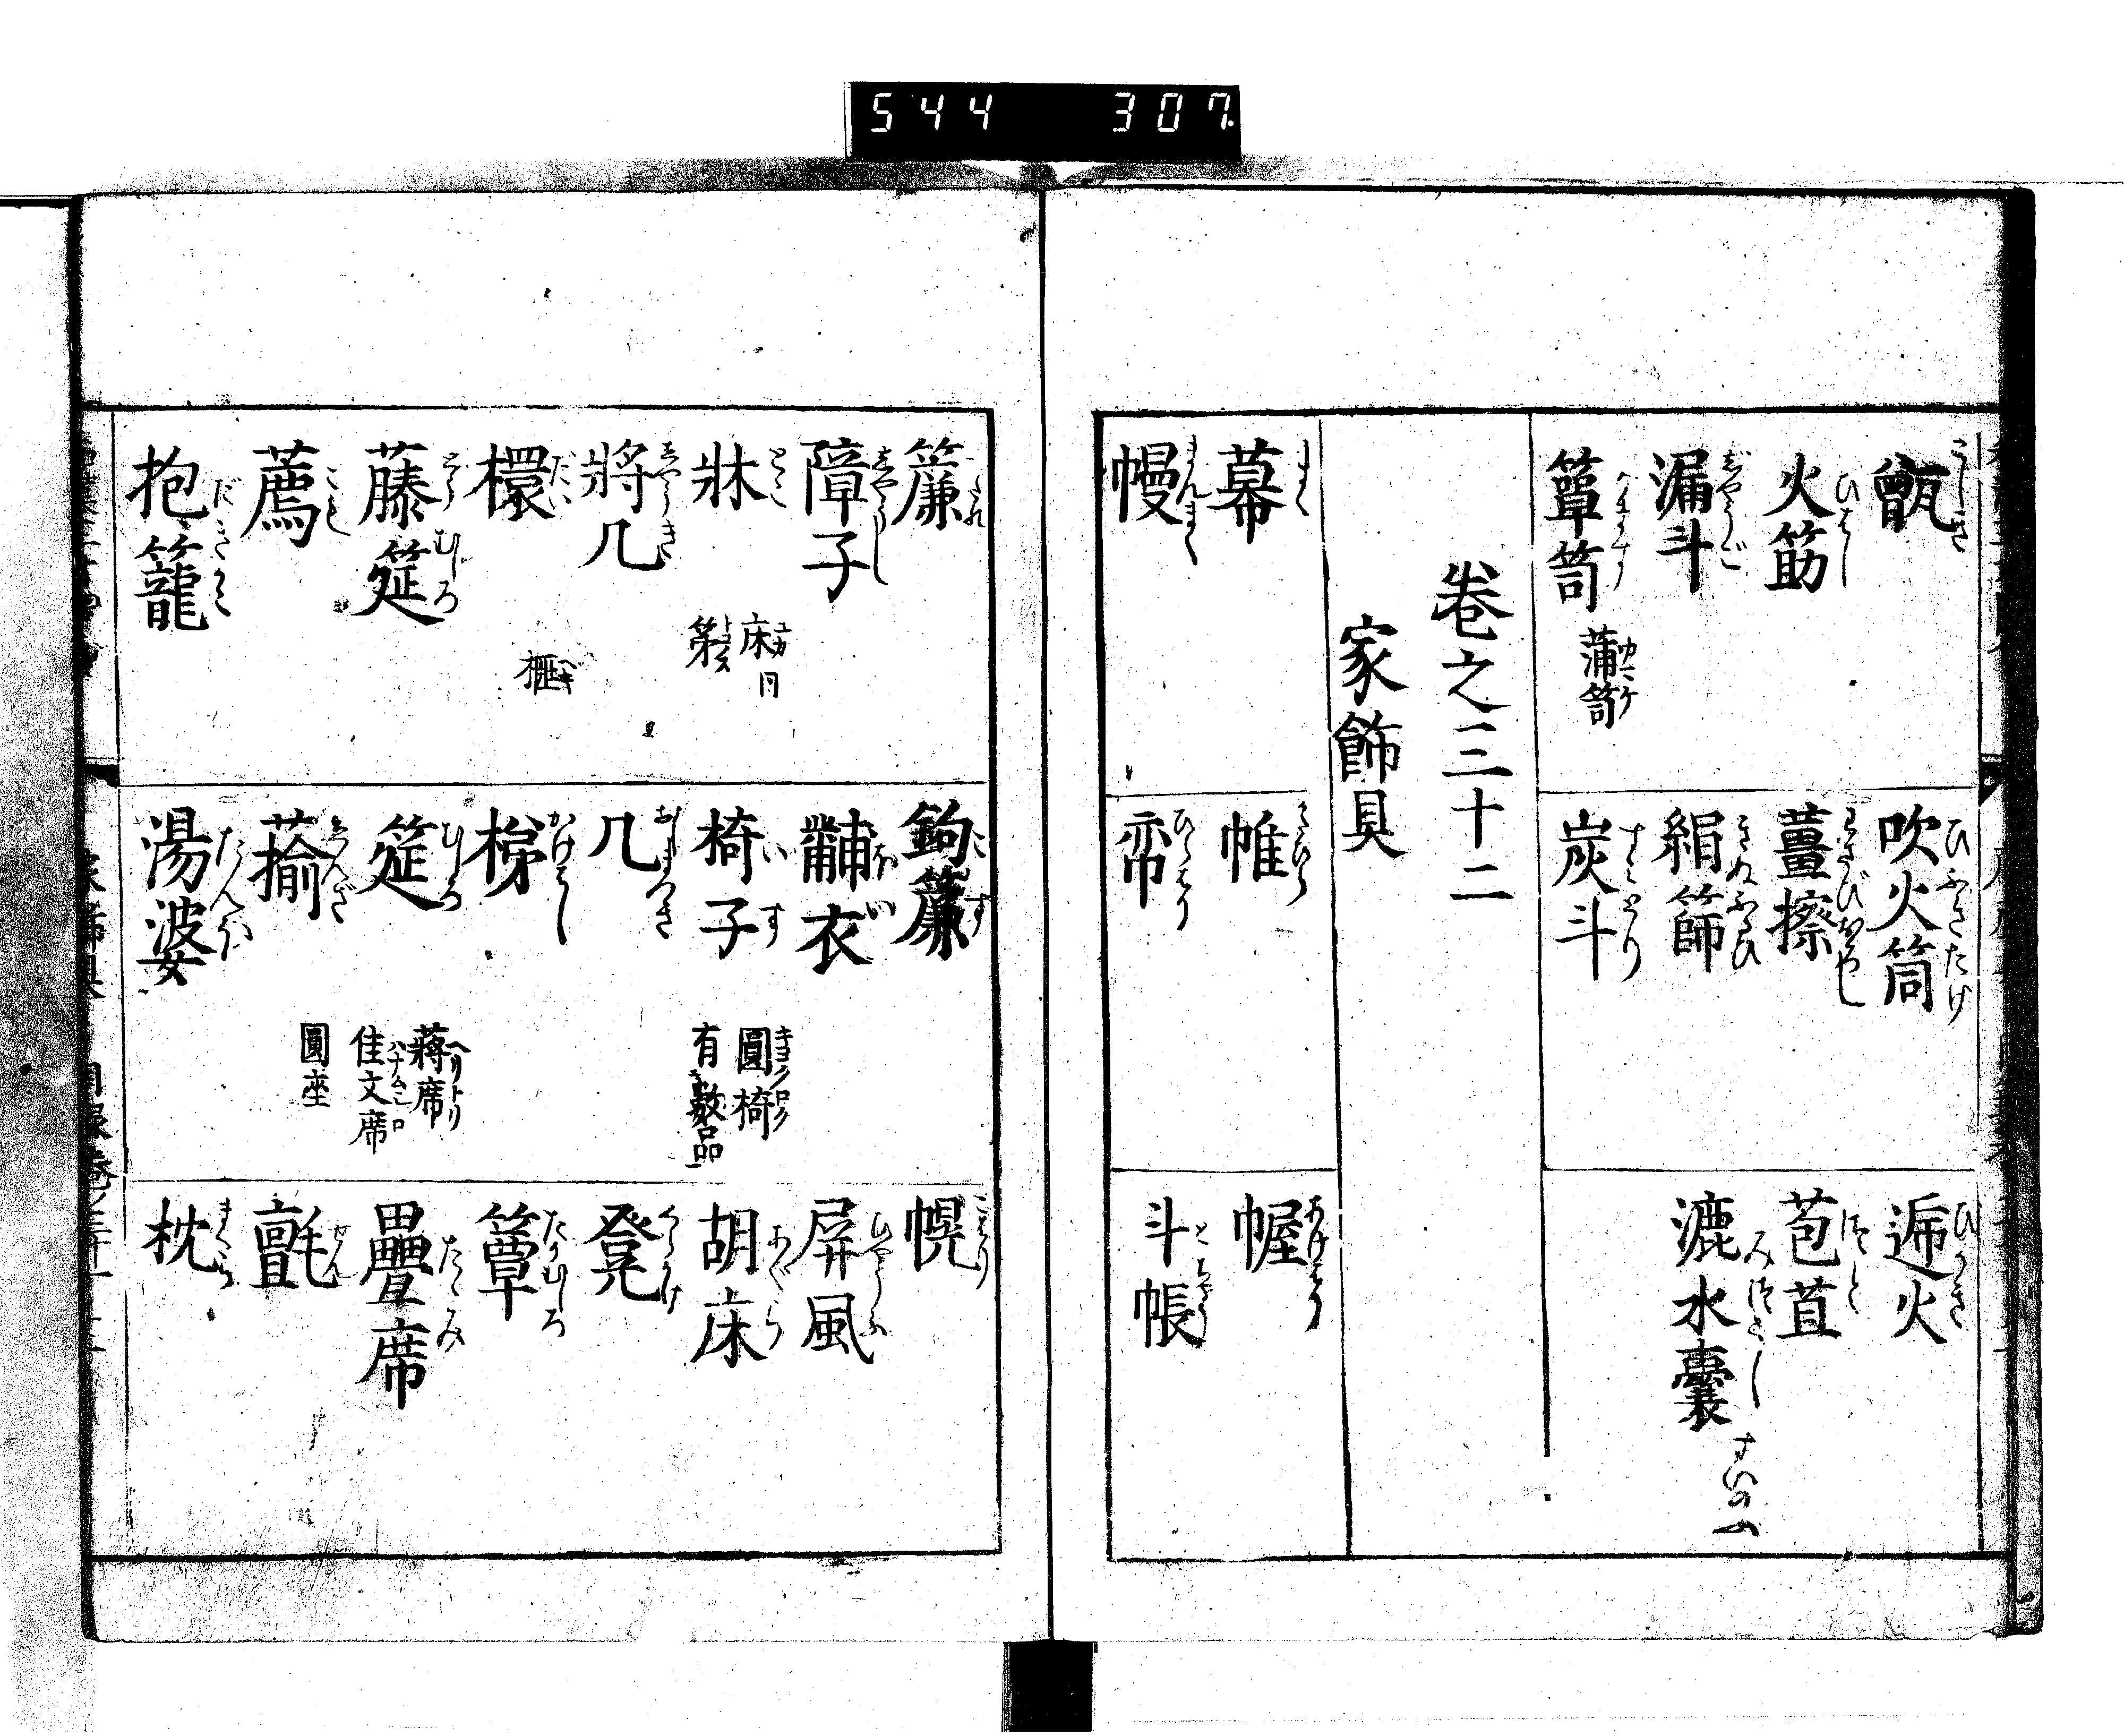 544 307
甑 こしき
吹火筒 ひふきたけ
火筯 ひばし
薑擦 わさびおろし
苞苴 つと
漏斗 じやうご
絹篩 きぬふるひ
漉水嚢 みづこし すいのう
簞笥
蒲笥
炭斗 すみとり
卷之三十二
家飾具
幕 まく
帷
幄 あげばり
幔 まんまく
帟 ひらばり
斗帳 とちやう
簾 すだれ
鉤簾 こす
幌
障子 しやうし
黼衣
屏風 びやうぶ
牀 とこ
床 ユカ 同
第
椅子 いす
圓椅 キヨクロク
有數品
胡床 あぐら
將几 しやうき
几 おしまづき
凳
檈 だい
梯 かけはし
簟 たかむしろ
藤筵 とうむしろ
筵 むしろ
蔣席 ヘリトリ
佳文席
疊席 たゝみ
薦 こも
圓座
氈 せん
抱籠 だきかご
湯婆 たんぽ
枕 まくら